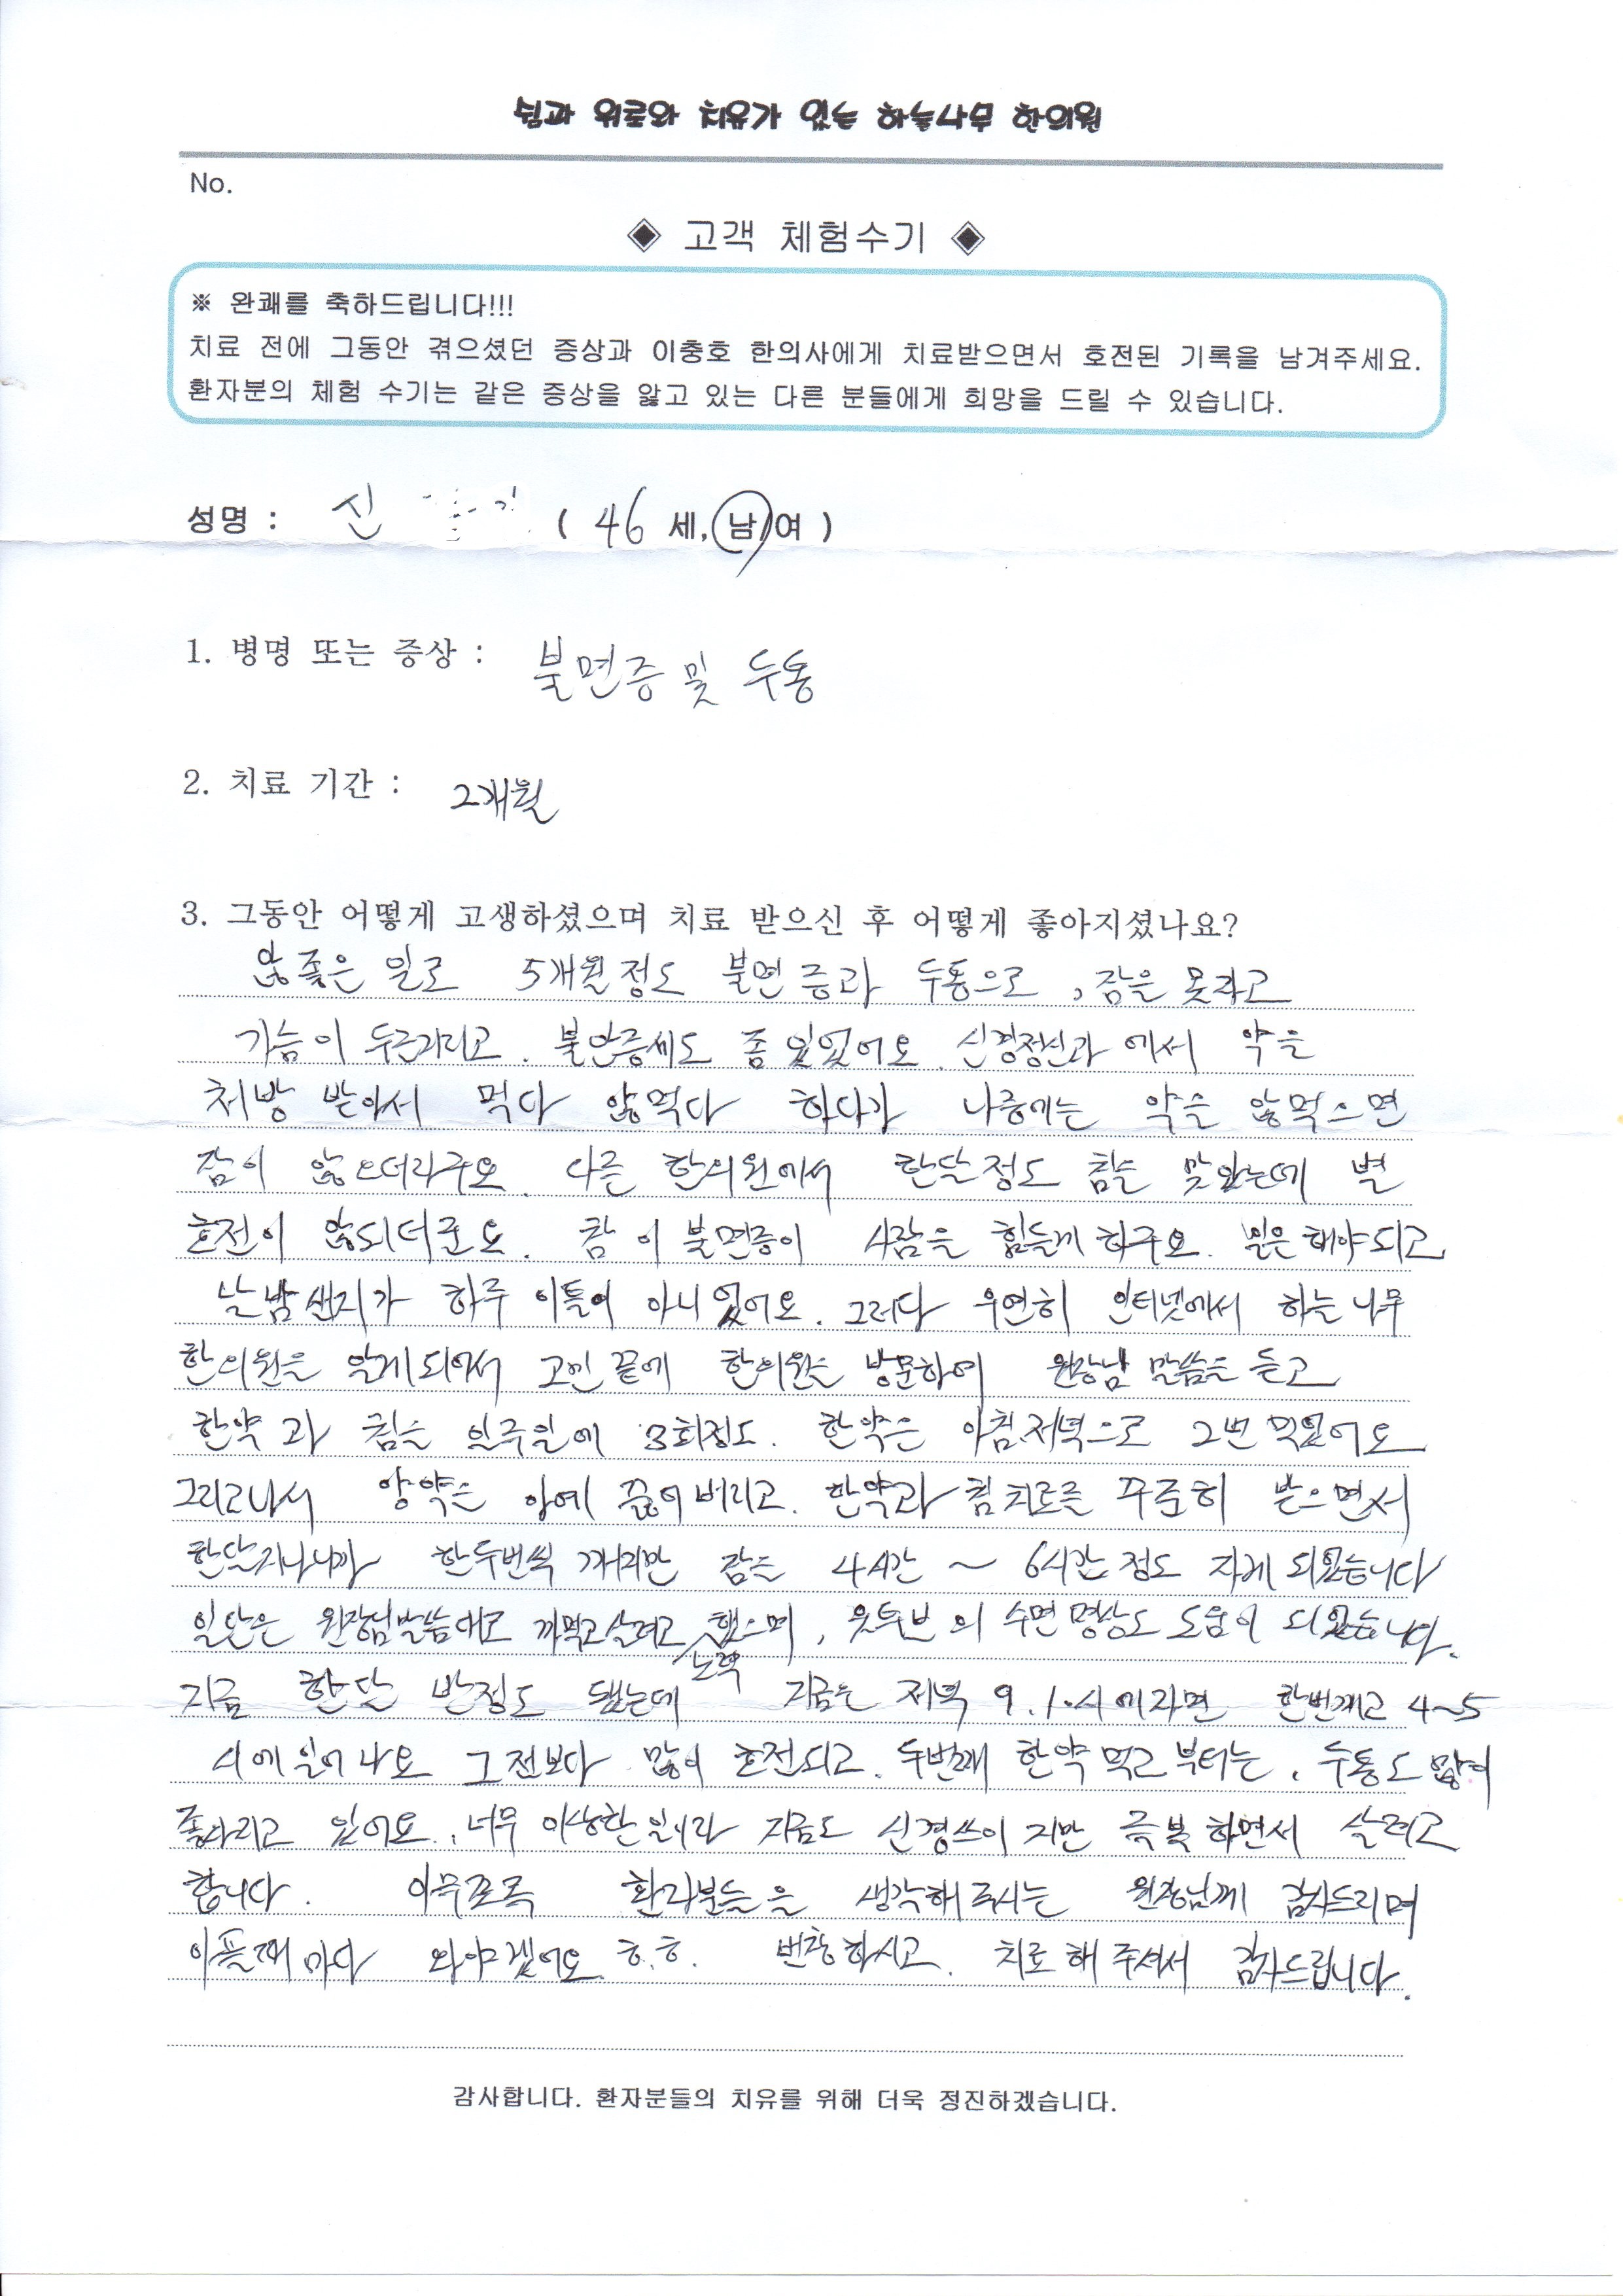 쉼과 위로와 치유가 있는 하늘나무 한의원
No.
◈ 고객 체험수기 ◈
※ 완쾌를 축하드립니다!!!
치료 전에 그동안 겪으셨던 증상과 이충호 한의사에게 치료받으면서 호전된 기록을 남겨주세요.
환자분의 체험 수기는 같은 증상을 앓고 있는 다른 분들에게 희망을 드릴 수 있습니다.
성명 : 신 ( 46 세, 남/여 )
1. 병명 또는 증상 : 불면증 및 두통
2. 치료 기간 : 2개월
3. 그동안 어떻게 고생하셨으며 치료 받으신 후 어떻게 좋아지셨나요?
않좋은 일로 5개월정도 불면증과 두통으로, 잠을 못자고
가슴이 두근거리고. 불안증세도 좀 있었어요. 신경정신과에서 약을
처방 받아서 먹다 않먹다 하다가 나중에는 약을 않먹으면
잠이 않으더라구요. 다른 한의원에서 한달정도 침을 맞았는데 별
호전이 않되더군요. 참 이 불면증이 사람을 힘들게 하구요. 일은 해야되고
날밤새지가 하루 이틀이 아니었어요. 그러다 우연히 인터넷에서 하늘나무
한의원을 알게되어서 고민 끝에 한의원을 방문하여 원장님 말씀을 듣고
한약과 침을 일주일에 3회정도. 한약은 아침.저녁으로 2번 먹었어요
그리고나서 양약은 아예 끊어버리고. 한약과 침치료를 꾸준히 받으면서
한달지나니까 한두번씩 깨지만 잠을 4시간 ~ 6시간 정도 자게 되었습니다
일단은 원장님말씀대로 까먹고살려고 노력 했으며, 유튜브의 수면명상도 도움이 되었습니다.
지금 한달 반정도 됐는데 지금은 저녁 9.10시에자면 한번깨고 4~5
시에 일어나요 그전보다 많이 호전되고. 두번째 한약먹고부터는. 두통도 많이
좋아지고 있어요. 너무 이상한 일이라 지금도 신경쓰이지만 극복하면서 살려고
합니다. 아무쪼록 환자분들을 생각해주시는 원장님께 감사드리며
아플때마다 와야겠어요. ㅎ.ㅎ. 번창하시고. 치료해주셔서 감사드립니다.
감사합니다. 환자분들의 치유를 위해 더욱 정진하겠습니다.